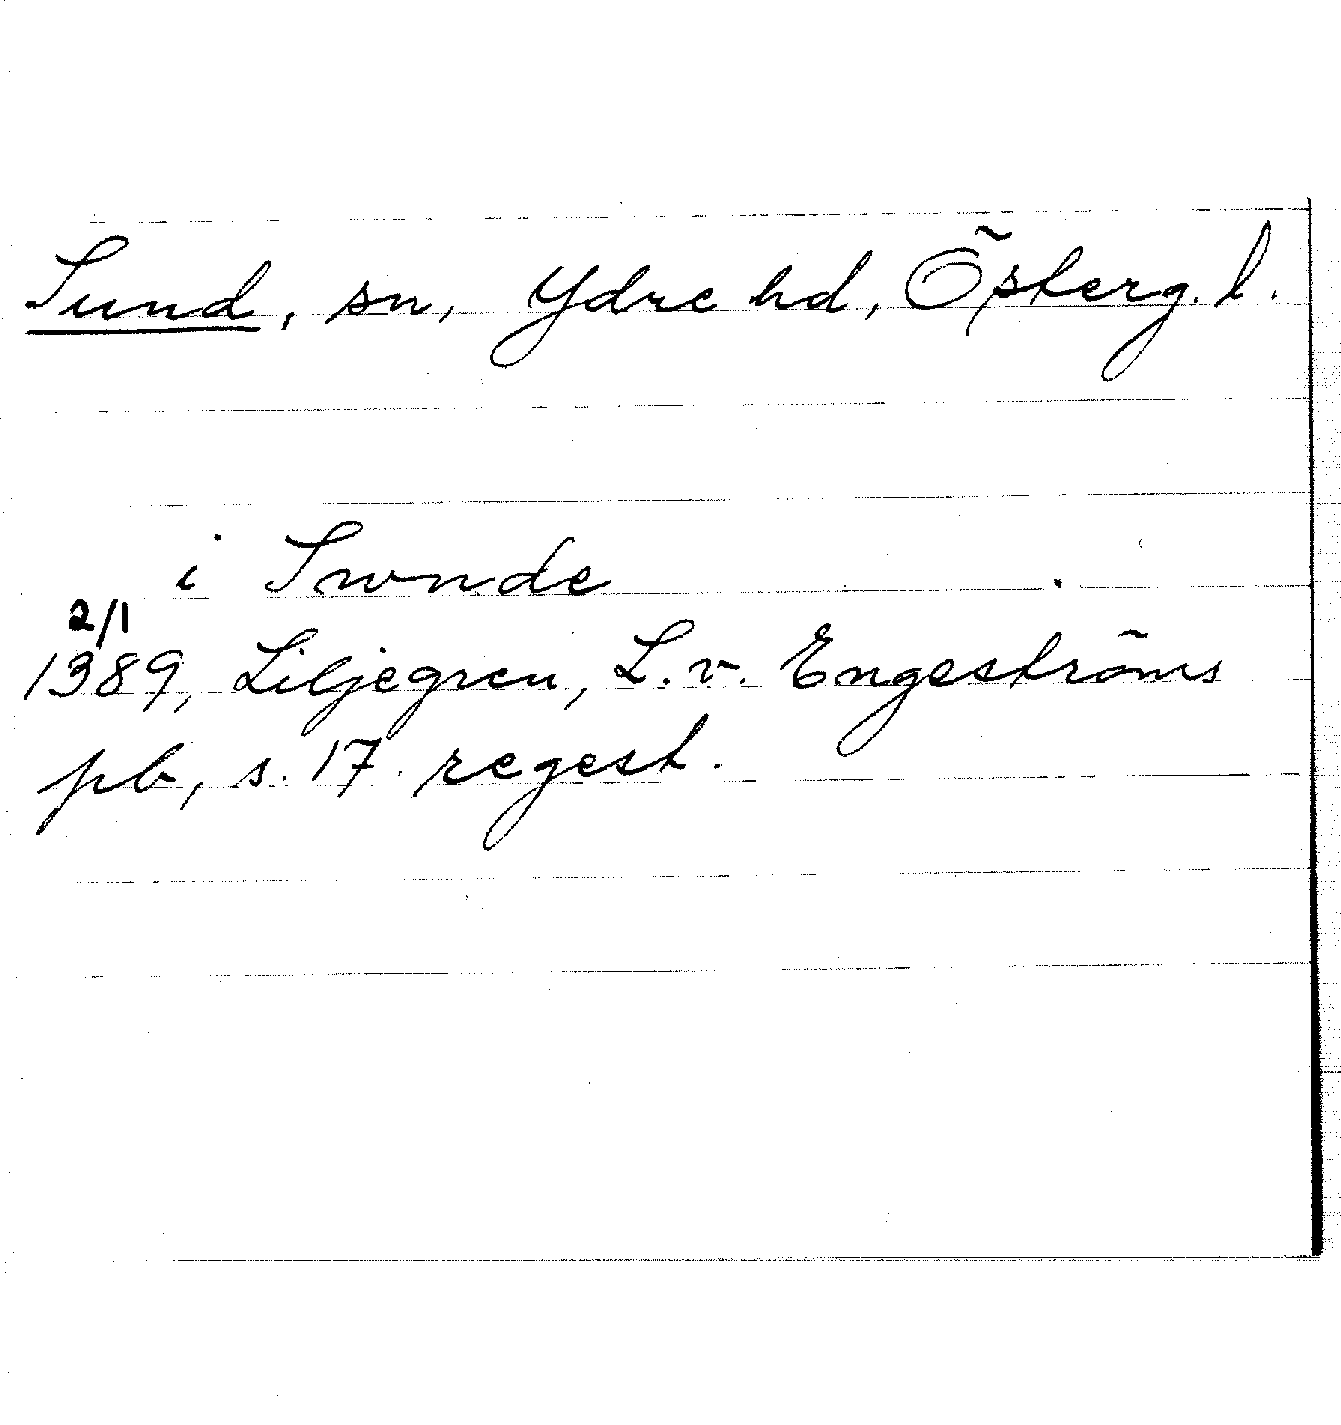 Sund, sn, Ydre hd, Österg. l.
i Swnde
2/1
1389, Liljegren, L. v. Engeströms
pb, s. 17. regest.